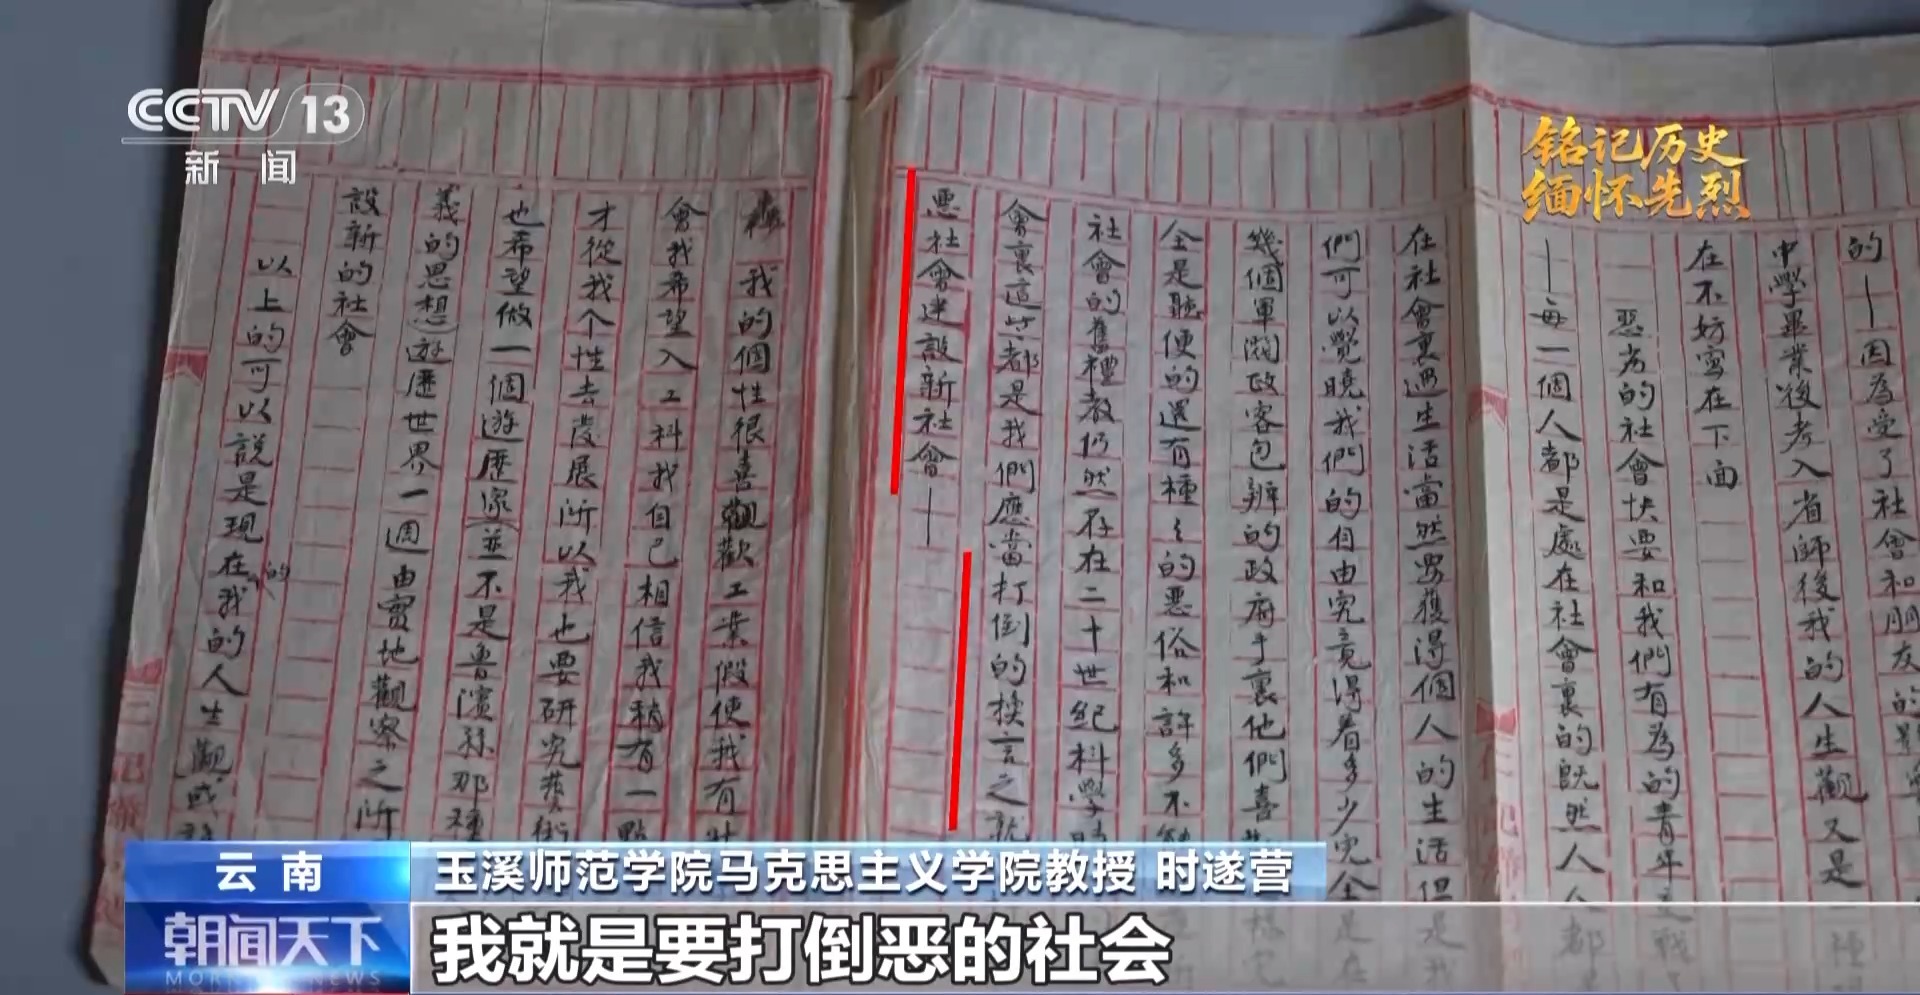 CCTV 13
新闻
铭记历史
缅怀先烈
的—因為受了社會和朋友的
中學畢業後考入省師後我的人生觀又是一種
在不妨寫在下面
惡劣的社會快要和我們有為的青年交戰
—每一個人都是處在社會裏的既然人人都
在社會裏過生活當然要獲得個人的生活但是我
們可以覺曉我們的自由究竟得着多少完全是在
幾個軍閥政客包辦的政府手裏他們喜
全是聽便的還有種々的惡俗和許多不
社會的舊禮教仍然存在二十世紀科學
會裏這些都是我們應當打倒的換言之就
惡社會建設新社會—
我的個性很喜觀歡工業假使我有
會我希望入工科我自己相信我稍有一點
才從我个性去發展所以我也要研究藝術
也希望做一個遊歷家(並不是魯濱孫那種
義的思想)遊歷世界一週由實地觀察之所
設新的社會
以上的可以說是現在的我的人生觀或
云南
玉溪师范学院马克思主义学院教授 时遂营
朝闻天下
MORNING NEWS
我就是要打倒恶的社会